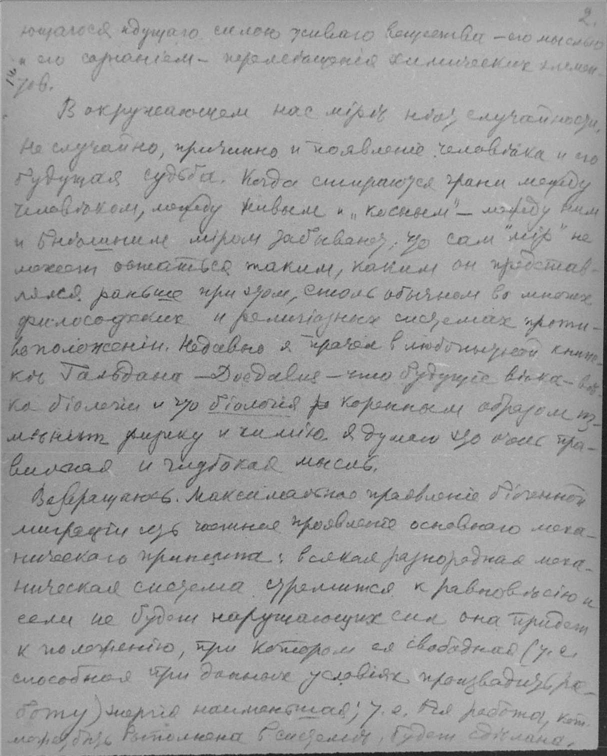 2.
ющагося идущаго силою живаго вещества – его мыслью
и его сознаніем – перемѣщенія химических элемен-
тов.
В окружающем нас мірѣ нѣт случайности.
Не случайно, причинно и появленіе человѣка и его
будущая судьба. Когда стираются грани между
человѣком, между живым и "косным" – между ним
и внѣшним міром забывают, что сам "мір" не
может остаться таким, каким он представ-
лялся раньше при этом, столь обычном во многих
философских и религіозных системах проти-
воположеніи. Недавно я прочел в любопытной книж-
кѣ – что будущіе вѣка – вѣ-
ка біологіи и что біологія коренным образом из-
мѣнит физику и химію. Я думаю что это пра-
вильная и глубокая мысль.
Возвращаюсь. Максимальное проявленіе біогенной
миграціи есть частное проявленіе основнаго меха-
ническаго принципа: всякая разнородная меха-
ническая система стремится к равновѣсію и
если не будет нарушающих сил она придет
к положенію, при котором ея свободная (т.е.
способная при данных условіях производить ра-
боту) энергія наименьшая; т.е. вся работа, кот.
может быть выполнена в системѣ, будет сдѣлана,